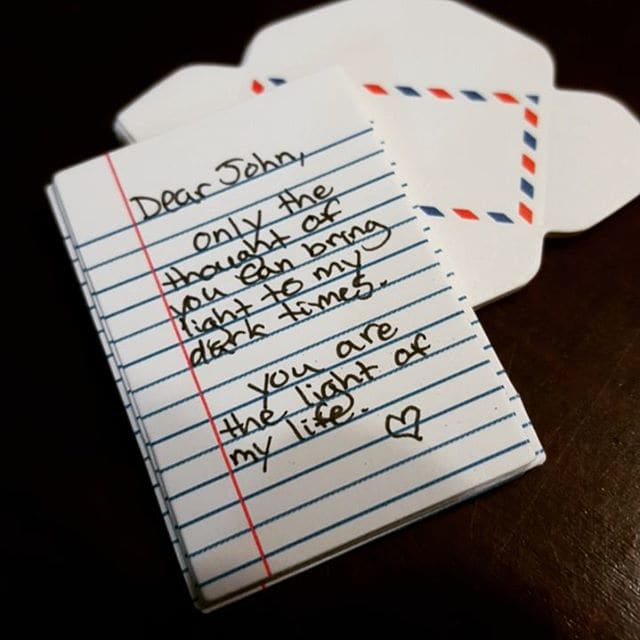 Dear John,
only the
thought of
you can bring
light to my
dark times.
you are
the light of
my life.